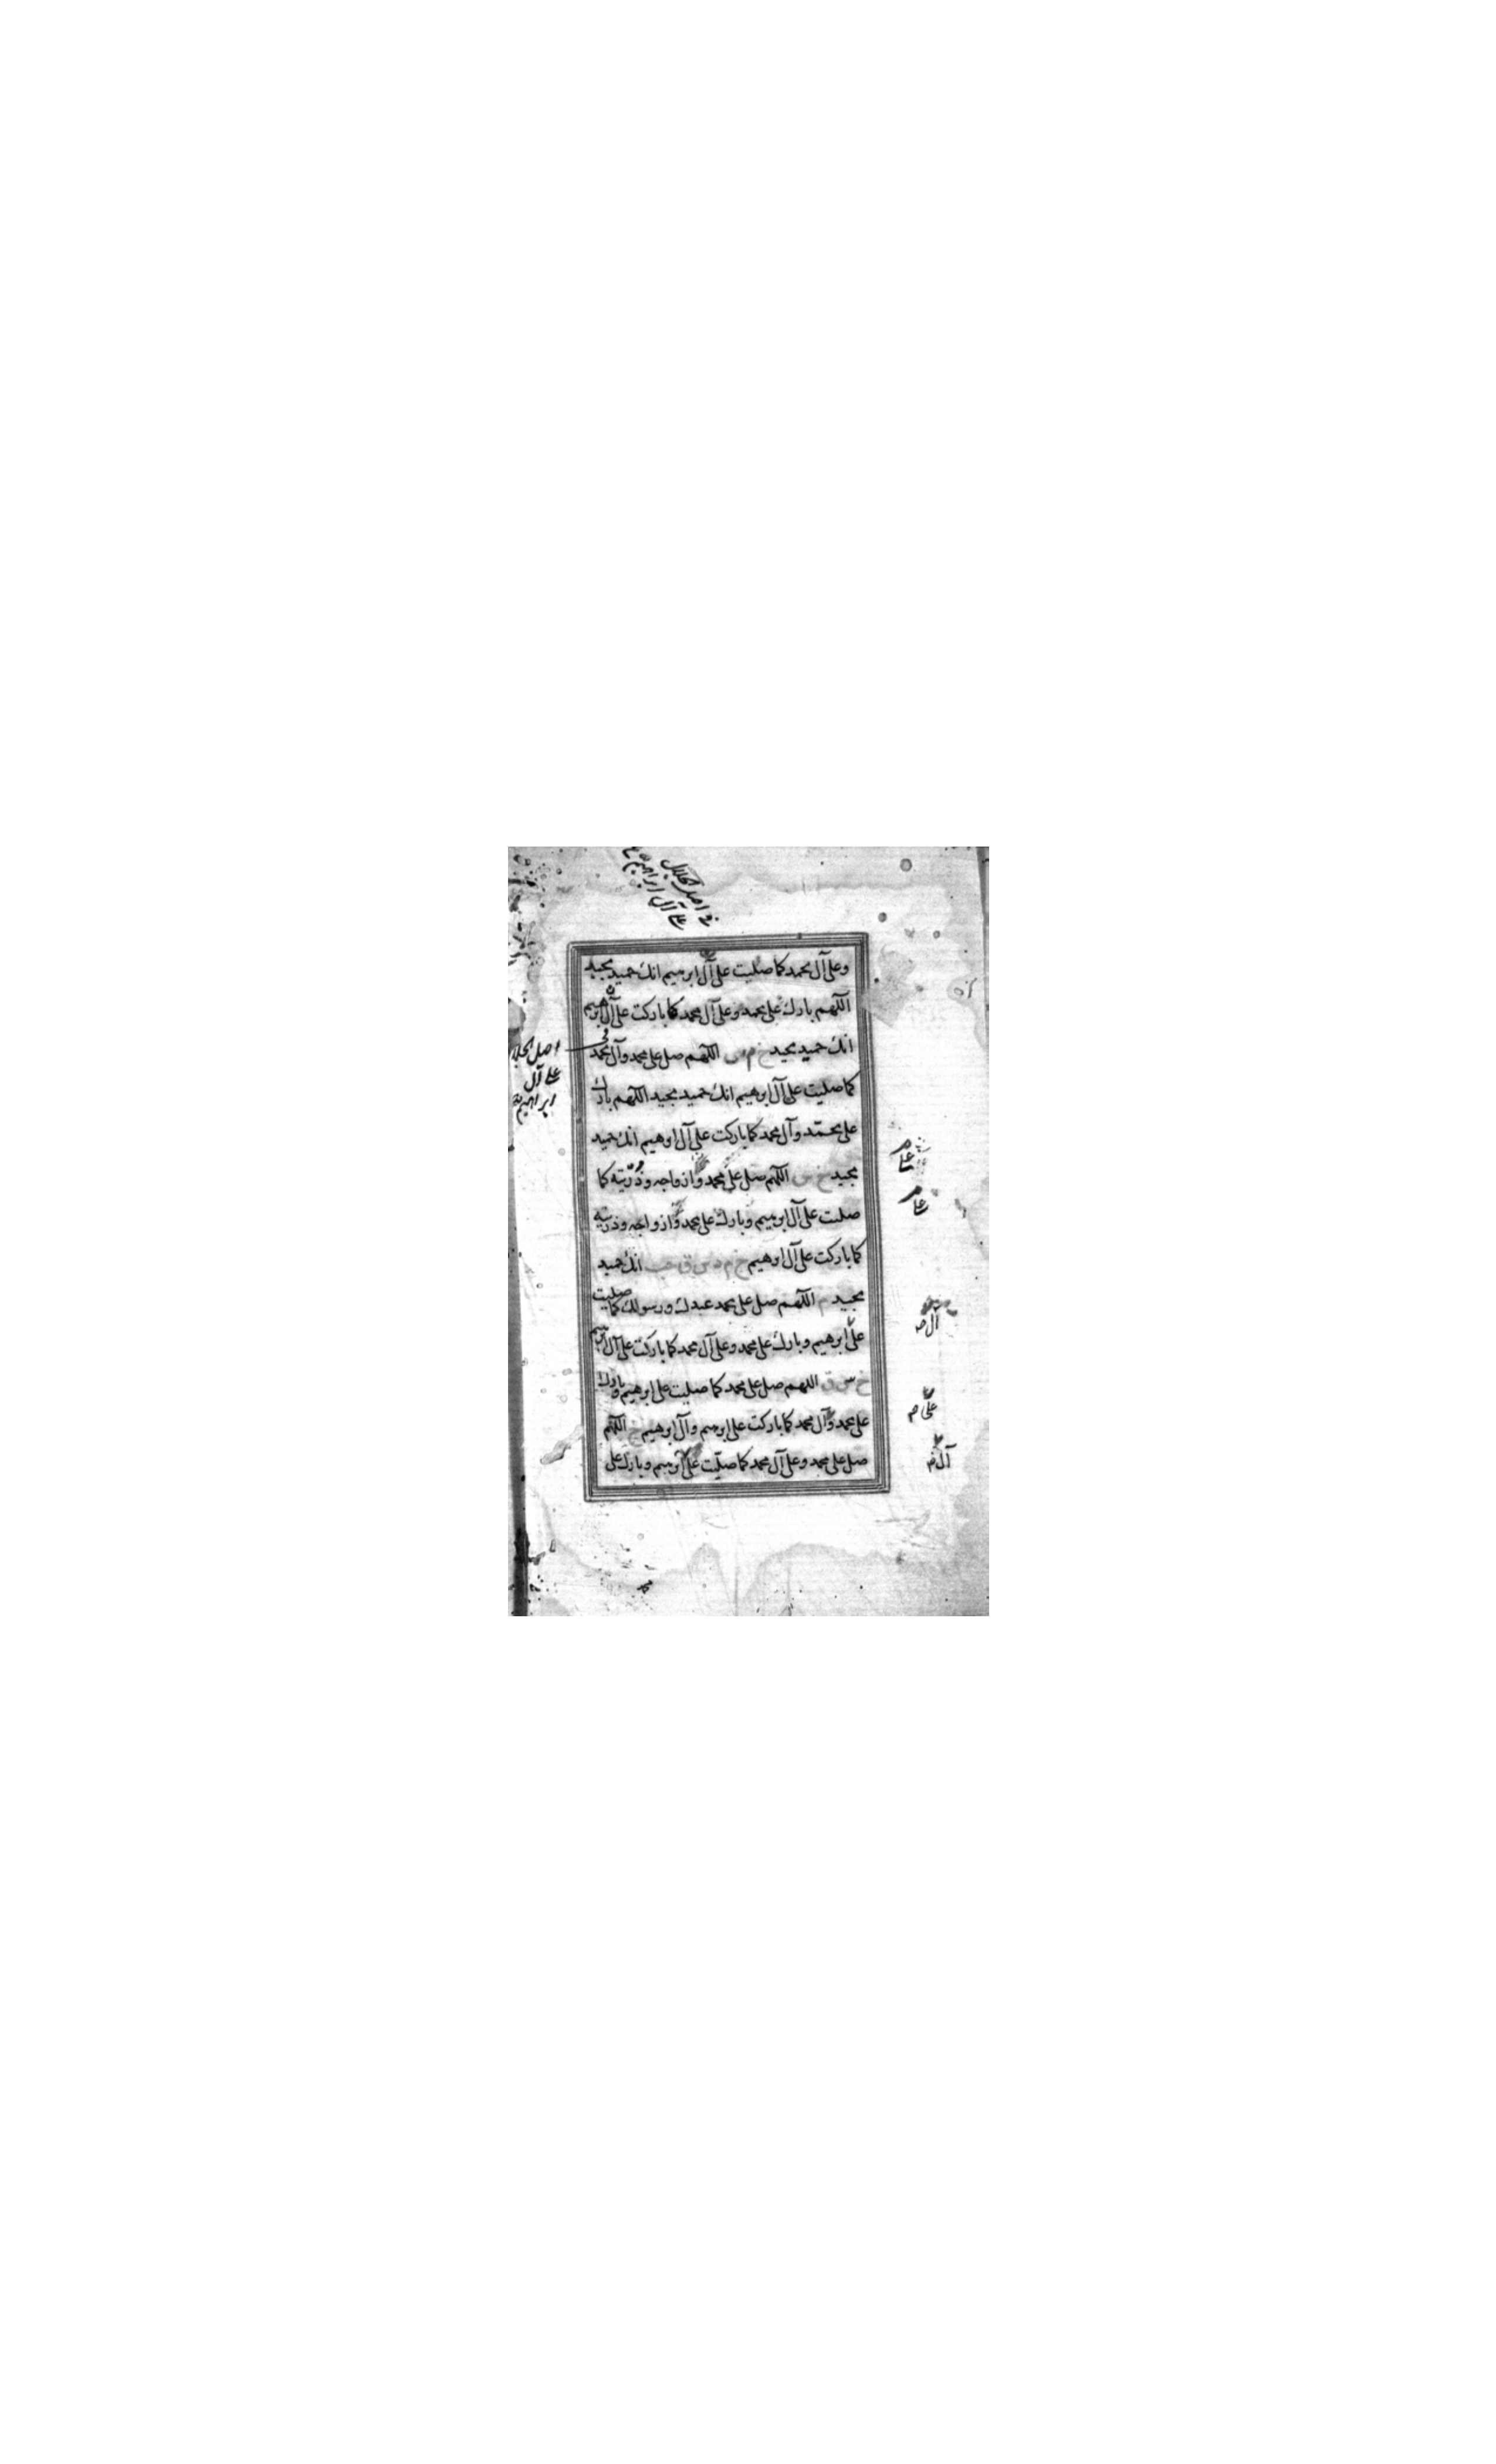 وعلى آل محمد كما صليت على آل ابرهيم انك حميد مجيد
اللهم بارك على محمد وعلى آل محمد كما باركت على آل ابرهيم
انك حميد مجيد خ م س اللهم صل على محمد وآل محمد
كما صليت على آل ابرهيم انك حميد مجيد اللهم بارك
على محمد وآل محمد كما باركت على آل ابرهيم انك حميد
مجيد خ س اللهم صل على محمد وازواجه وذريته كما
صلت على آل ابرهيم وبارك على محمد وازواجه وذريته
كما باركت على آل ابرهيم خ م د س ق انك حميد
مجيد م اللهم صل على محمد عبدك ورسولك كما صليت
على ابرهيم وبارك على محمد وعلى آل محمد كما باركت على آل ابرهيم
خ س ق اللهم صل على محمد كما صليت على ابرهيم وبارك
على محمد وآل محمد كما باركت على ابرهيم وآل ابرهيم خ اللهم
صل على محمد وعلى آل محمد كما صليت على ابرهيم وبارك على
في اصل الجلال
على آل ابراهيم
اصل
على آل
ابراهيم
آل
على م
آل م